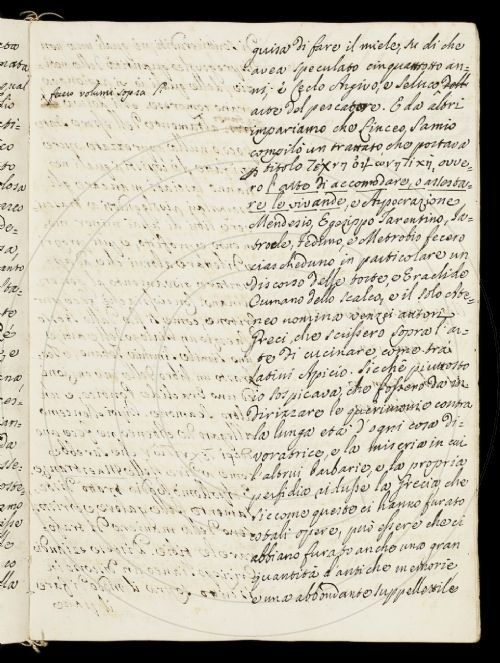 guisa di fare il miele, su di che
avea speculato cinquantotto an-
ni; è Ceclo Argivo, e Seleuco dell'
arte del pescatore. E da altri
x fecero volumi sopra
impariamo che Linceo, Samio
compilò un trattato che portava
il titolo Τεχνη ὀψωνητικὴ, ovve-
ro l'arte di accomodare, o assesta-
re le vivande, e Appocrazione
Mendesio, Egesippo Tarentino, Ia-
trocle, Fedimo, e Metrobio fecero
ciascheduno in particolare un
discorso delle torte, e Eraclide
Cumano dello scalco, e il solo Ate-
neo nomina venzei autori
Greci che scrissero sopra l'ar-
te di cucinare, come trà
latini Apicio. Sicchè piuttosto
io sospicava, che fossero da in-
dirizzare le querimonie contra
la lunga età d'ogni cosa di-
voratrice, e la miseria in cui
l'altrui barbarie, e la propria
perfidia ridusse la Grecia che
siccome queste ci hanno furato
cotali opere, può essere che ci
abbiano furato anche una gran
quantità d'antiche memorie
e una abbondante suppellettile